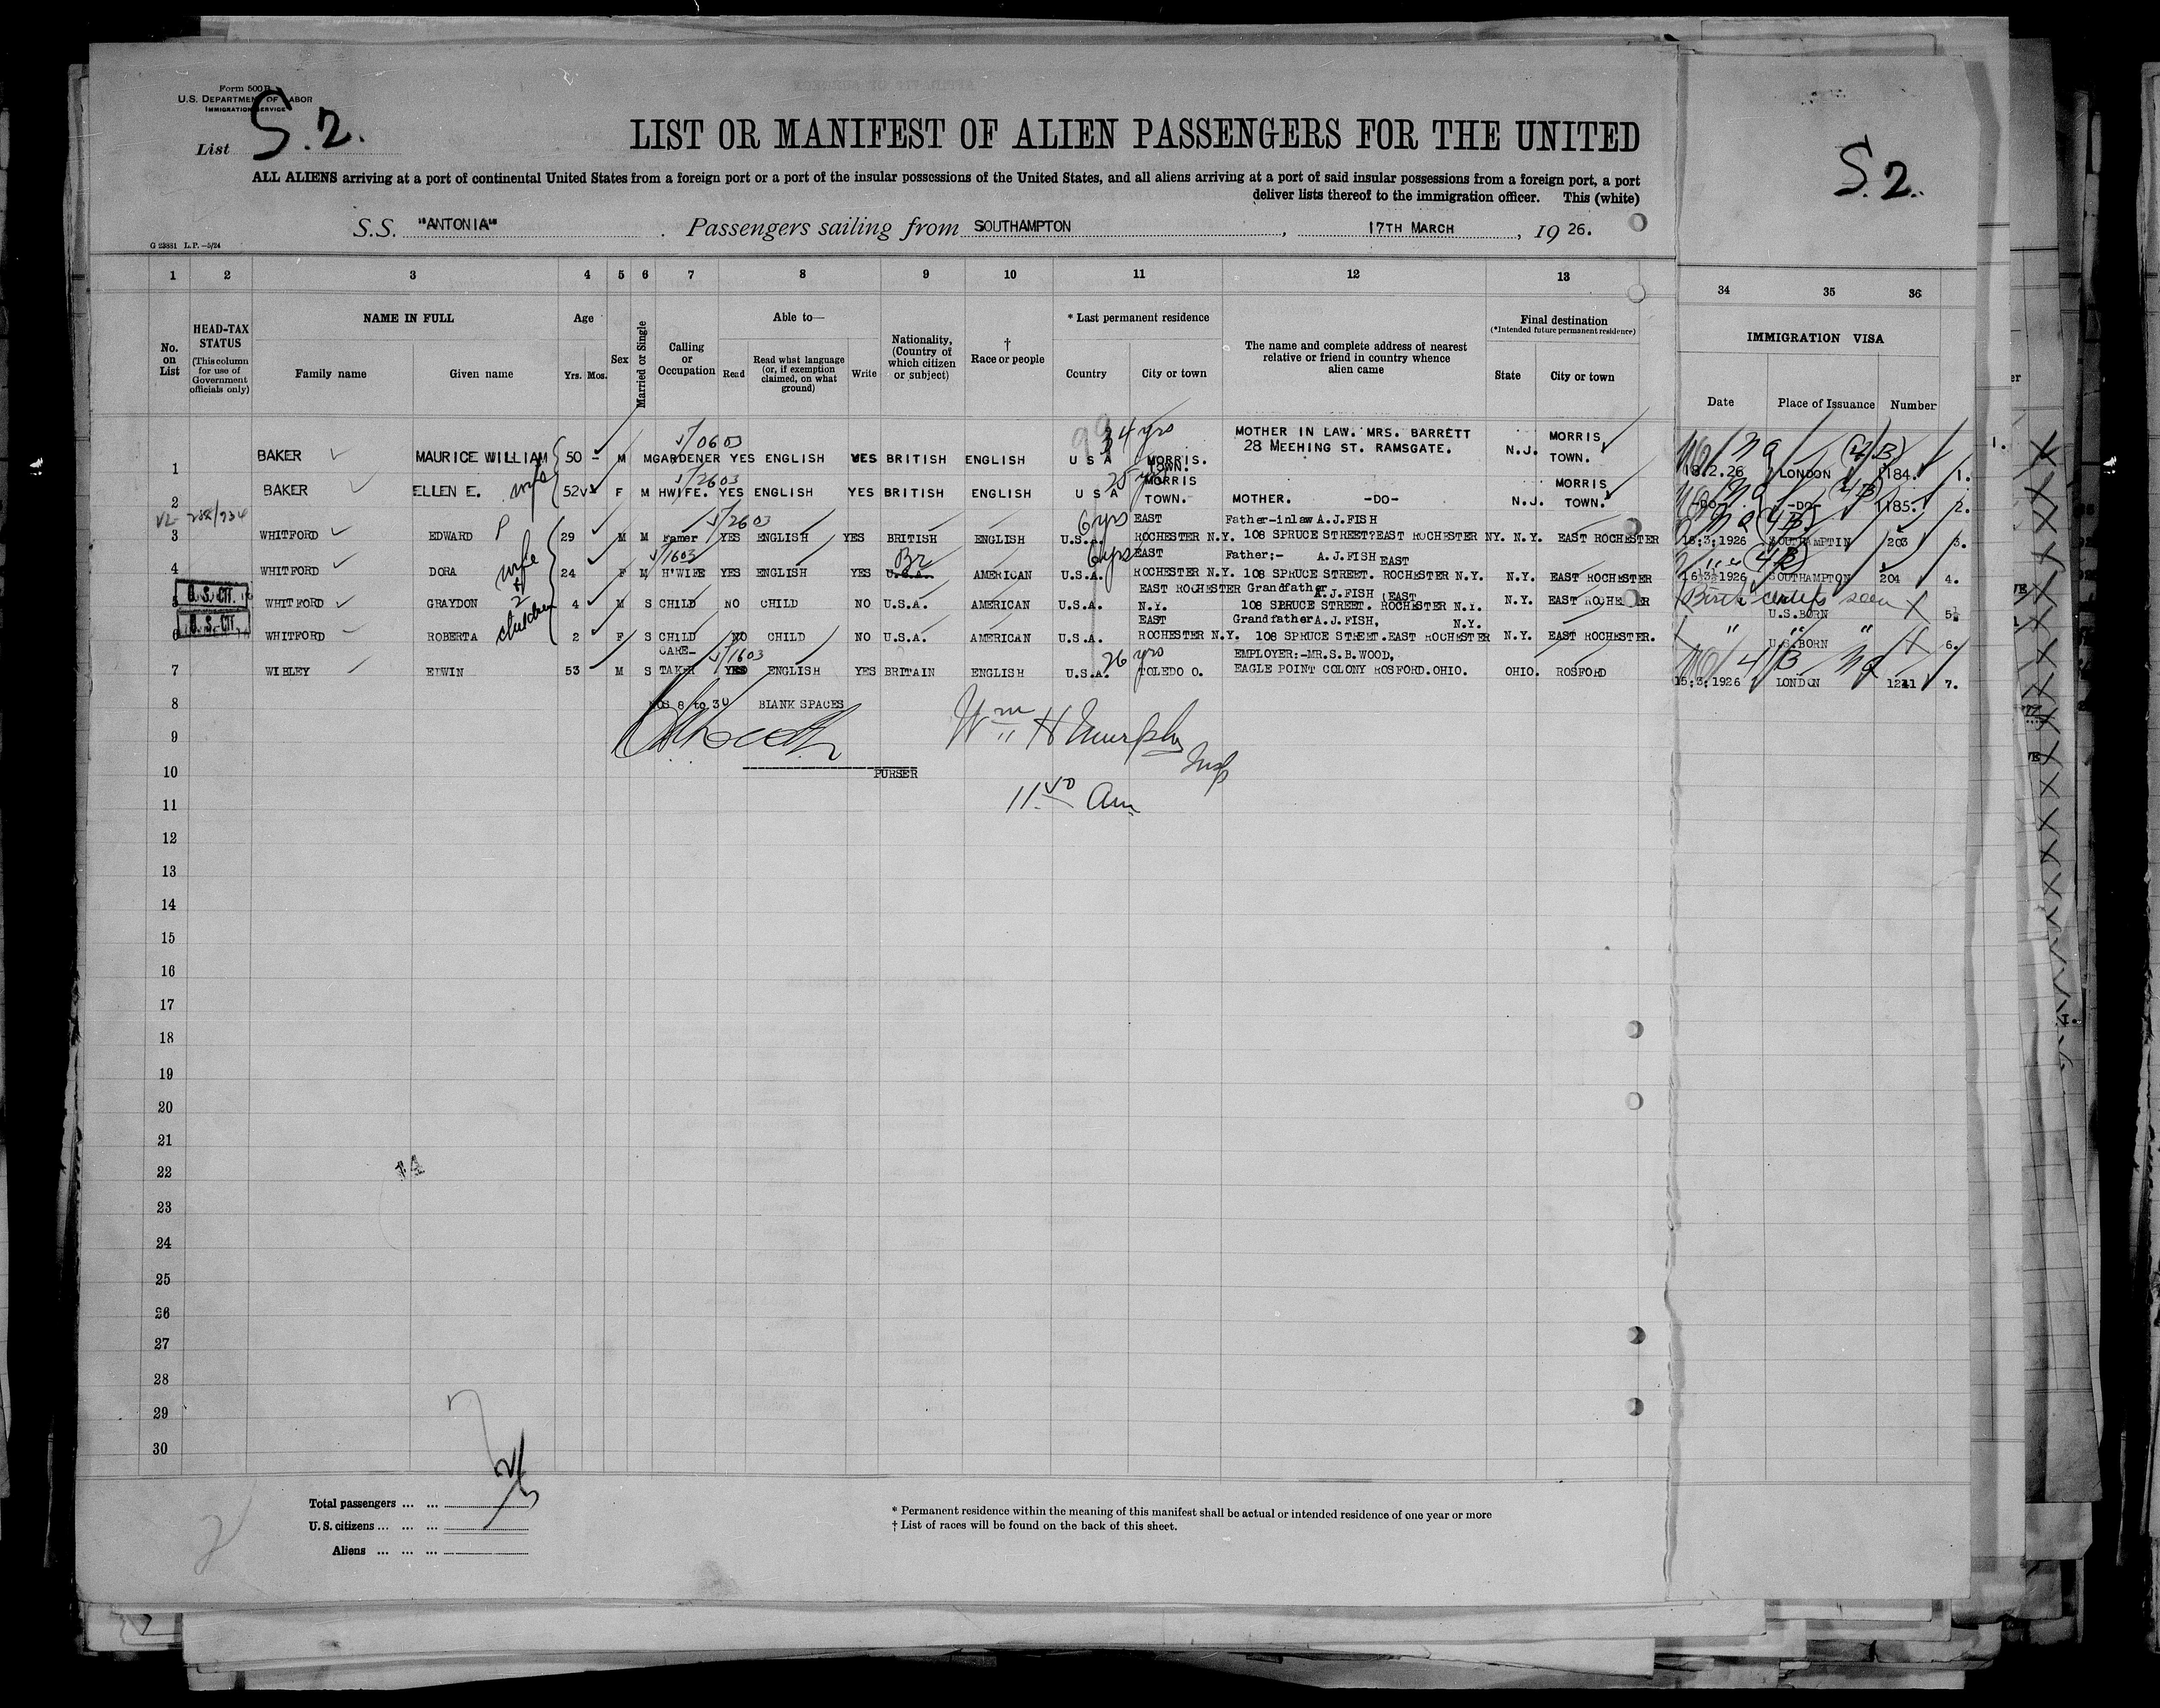 Form 500 B
U.S. DEPARTMENT OF LABOR
IMMIGRATION SERVICE
List S.2.
LIST OR MANIFEST OF ALIEN PASSENGERS FOR THE UNITED
S.2.
ALL ALIENS arriving at a port of continental United States from a foreign port or a port of the insular possessions of the United States, and all aliens arriving at a port of said insular possessions from a foreign port, a port
deliver lists thereof to the immigration officer. This (white)
S.S. "ANTONIA" . Passengers sailing from SOUTHAMPTON , 17TH MARCH , 19 26.
G 23881 L.P.—5/24
1 2 3 4 5 6 7 8 9 10 11 12 13 34 35 36
No. on List
HEAD-TAX STATUS (This column for use of Government officials only)
NAME IN FULL
Family name Given name
Age
Yrs. Mos.
Sex
Married or Single
Calling or Occupation
Able to—
Read Read what language (or, if exemption claimed, on what ground) Write
Nationality, (Country of which citizen or subject)
† Race or people
* Last permanent residence
Country City or town
The name and complete address of nearest relative or friend in country whence alien came
Final destination (*Intended future permanent residence)
State City or town
IMMIGRATION VISA
Date Place of Issuance Number
1 BAKER MAURICE WILLIAM 50 - M M GARDENER YES ENGLISH YES BRITISH ENGLISH U S A 34 yrs MORRIS. TOWN. MOTHER IN LAW. MRS. BARRETT 28 MEEHING ST. RAMSGATE. N.J. MORRIS TOWN. 18.2.26 LONDON 1184. 1.
2 BAKER ELLEN E. wife 52 F M HWIFE. YES ENGLISH YES BRITISH ENGLISH U S A 25 yrs MORRIS TOWN. MOTHER. -DO- N.J. MORRIS TOWN. -DO- -DO- 1185. 2.
3 WHITFORD EDWARD P 29 M M Famer YES ENGLISH YES BRITISH ENGLISH U.S.A. 6 yrs EAST ROCHESTER N.Y. Father-inlaw A.J.FISH 108 SPRUCE STREET?EAST ROCHESTER NY. N.Y. EAST ROCHESTER 16:3:1926 SOUTHAMPTIN 203 3.
4 WHITFORD DORA wife + 2 children 24 F M H'WIFE YES ENGLISH YES U.S.A. Br AMERICAN U.S.A. 6 yrs EAST ROCHESTER N.Y. Father:- A.J.FISH 108 SPRUCE STREET. EAST ROCHESTER N.Y. N.Y. EAST ROCHESTER 16:3:1926 SOUTHAMPTON 204 4.
U.S. CIT.
5 WHITFORD GRAYDON 4 M S CHILD NO CHILD NO U.S.A. AMERICAN U.S.A. EAST ROCHESTER N.Y. Grandfather A.J.FISH 108 SPRUCE STREET. EAST ROCHESTER N.Y. N.Y. EAST ROCHESTER Birth certifs seen U.S.BORN 5
U.S. CIT.
6 WHITFORD ROBERTA 2 F S CHILD NO CHILD NO U.S.A. AMERICAN U.S.A. EAST ROCHESTER N.Y. Grandfather A.J.FISH, 108 SPRUCE STREET.EAST ROCHESTER N.Y. N.Y. EAST ROCHESTER. " " " U.S.BORN 6.
7 WIBLEY EDWIN 53 M S CARE- TAKER YES ENGLISH YES BRITAIN ENGLISH U.S.A. 26 yrs TOLEDO O. EMPLOYER:-MR.S.B.WOOD, EAGLE POINT COLONY ROSFORD.OHIO. OHIO. ROSFORD 15:3:1926 LONDON 1211 7.
8 NOS 8 to 30 BLANK SPACES
9 Wm H Murphy Insp
10 PURSER
11 11 40 Am
12
13
14
15
16
17
18
19
20
21
22
23
24
25
26
27
28
29
30
Total passengers ... ...
U.S. citizens ... ... ...
Aliens ... ... ...
* Permanent residence within the meaning of this manifest shall be actual or intended residence of one year or more
† List of races will be found on the back of this sheet.